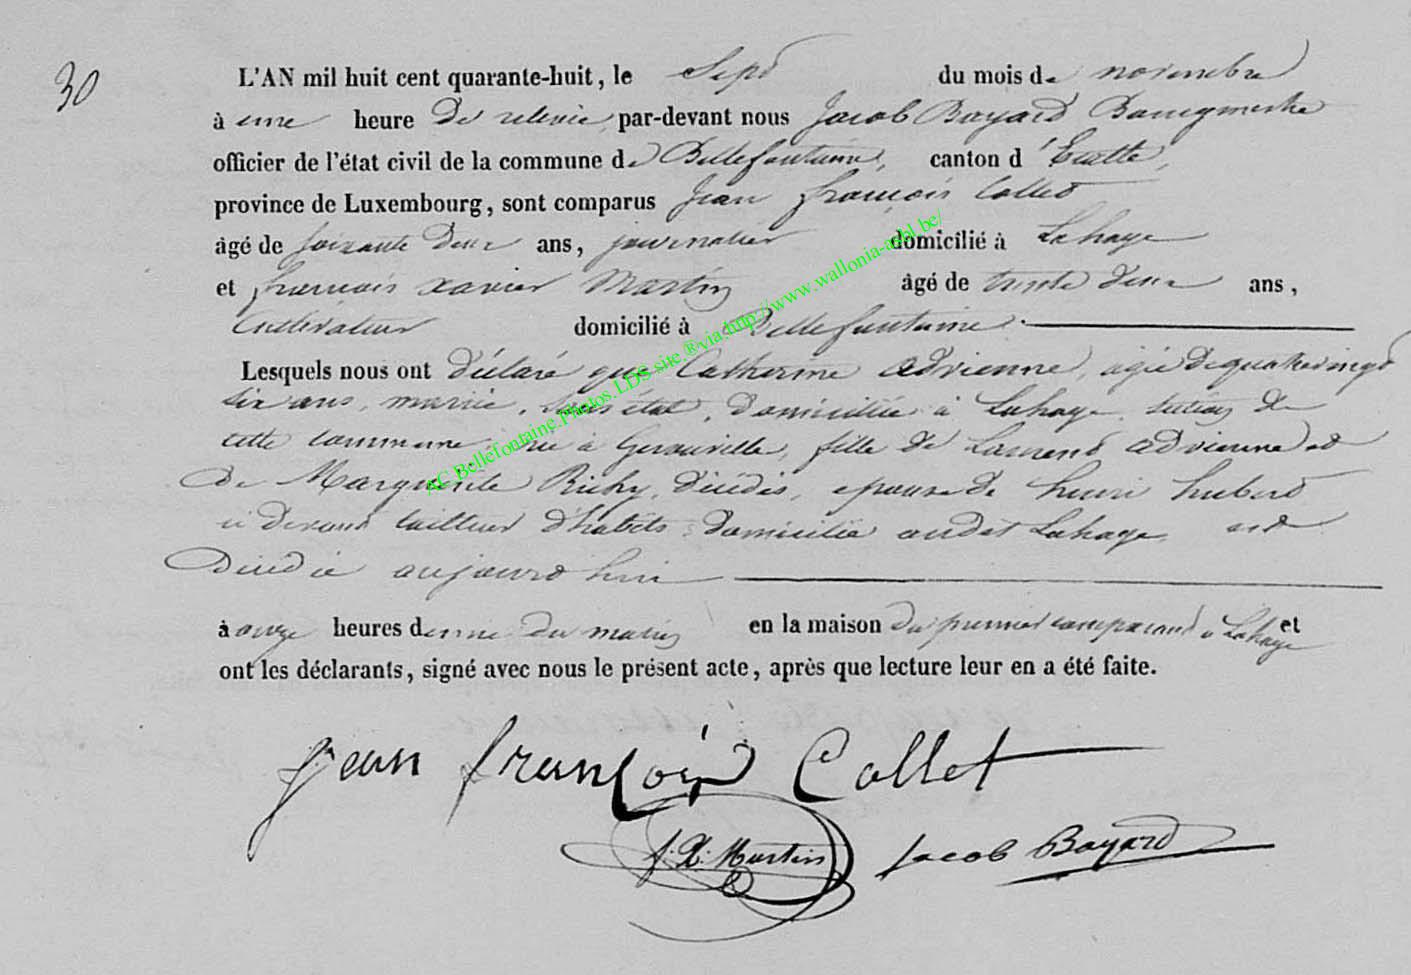 30
L'AN mil huit cent quarante-huit, le Sept du mois de novembre
à une heure de relevée, par-devant nous Jacob Bayard Bourgmestre
officier de l'état civil de la commune de Bellefontaine, canton d'Etalle,
province de Luxembourg, sont comparus Jean françois Collet
âgé de soixante deux ans, journalier domicilié à Lahage
et françois xavier Martin âgé de trente deux ans,
Cultivateur domicilié à Bellefontaine.
Lesquels nous ont déclaré que Catherine adrienne, agée de quatrevingt
six ans, mariée, sans état, domiciliée à Lahage section de
cette commune, née à Gerouville, fille de Laurent adrienne et
de Marguerite Richy, décédés, epouse de henri hubert
ci devant tailleur d'habits domicilié audit Lahage, est
décédée aujourd'hui
à onze heures du matin en la maison du premier comparant à Lahage et
ont les déclarants, signé avec nous le présent acte, après que lecture leur en a été faite.
Jean françois Collet
f. X. Martin Jacob Bayard
AC.Bellefontaine.Photos.LDS.site.®via.http://www.wallonia-asbl.be/